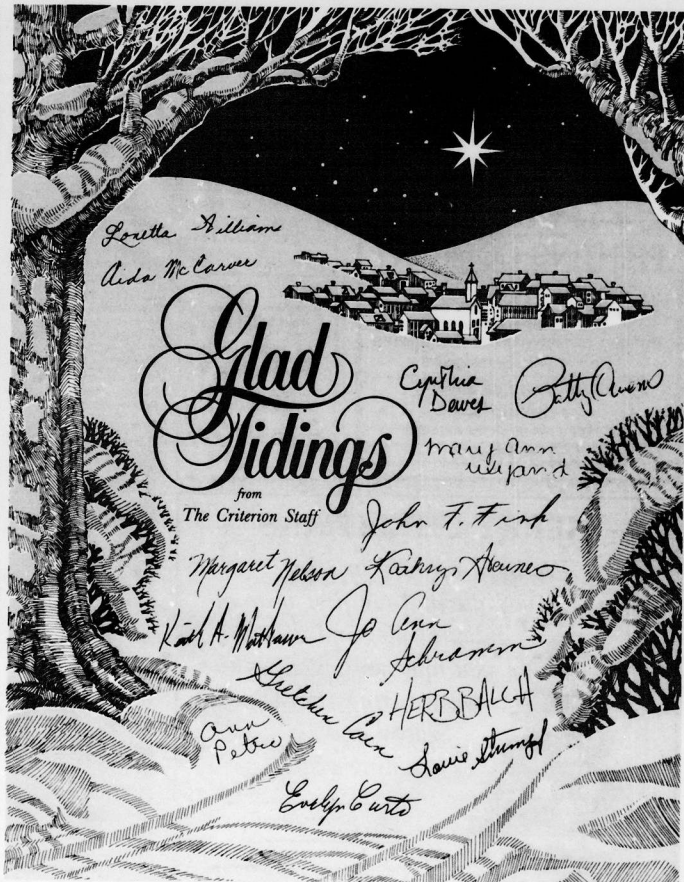 Loretta Williams
Aida McCarver
Glad
Tidings
from
The Criterion Staff
Cynthia
Dewes
Patty Owens
Mary Ann
Wyand
John F. Fink
Margaret Nelson
Kathryn
Keith A. Mathauer
Jo Ann
Schramm
Gretchen
HERB BALCH
Ann
Petro
Louie Stumpf
Evelyn Curto